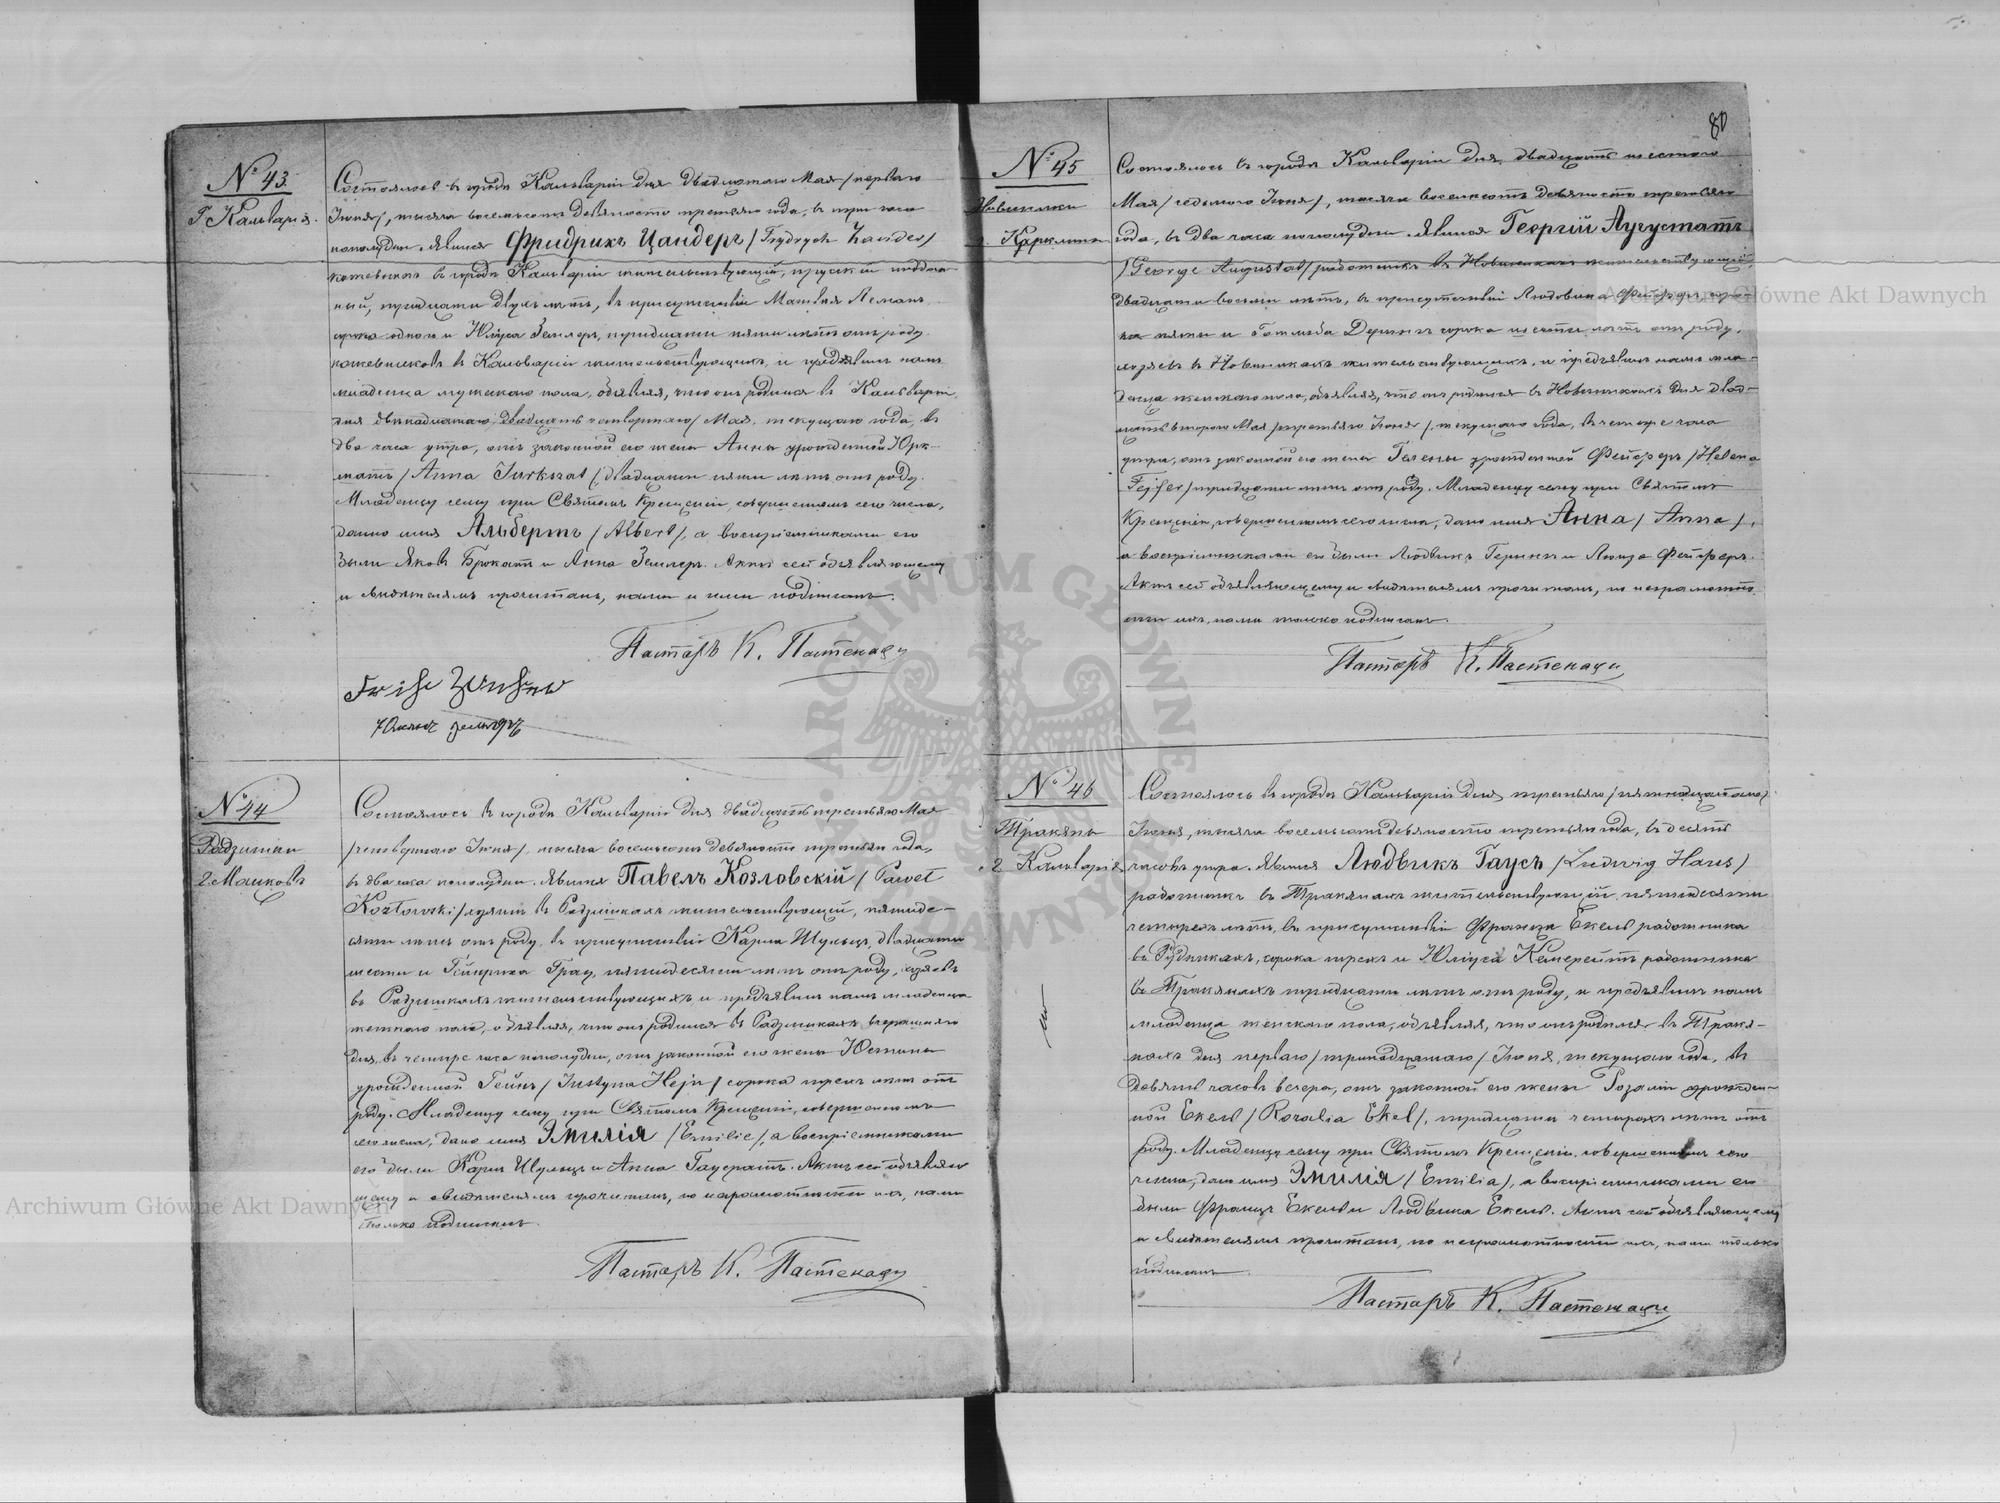 80
№ 43.
Г. Кальварія.
Состоялось въ городѣ Кальваріи дня двадцатаго Мая /перваго
Іюня/, тысяча восемьсотъ девяносто третьяго года, въ три часа
пополудни. Явился Фридрихъ Цандеръ / Frydrych Zander/
кожевникъ въ городѣ Кальваріи жительствующій, прускій поддан-
ный, тридцати двухъ лѣтъ, въ присутствіи Матвѣя Леманъ
сорока одного и Юліуса Зейлеръ, тридцати пяти лѣтъ отъ роду.
кожевниковъ въ Кальваріи жительствующихъ, и предъявилъ намъ
младенца мужескаго пола, объявляя, что онъ родился въ Кальваріи,
дня двѣнадцатаго /двадцать четвертаго/ Мая, текущаго года, въ
два часа утра, отъ законной его жены Анны урожденной Юрк-
шатъ / Anna Jurkszat /, двадцати пяти лѣтъ отъ роду.
Младенцу сему при Святомъ Крещеніи, совершенномъ сего числа,
дано имя Альбертъ / Albert/, а воспріемниками его
были Яковъ Брокатъ и Анна Зейлеръ. Актъ сей объявляющему
и свидѣтелямъ прочитанъ, нами и ими подписанъ.
Пасторъ К. Пастенаци
№ 44
Радзишки
Состоялось въ городѣ Кальваріи дня двадцать третьяго Мая
/четвертаго Іюня/, тысяча восемьсотъ девяносто третьяго года,
въ два часа пополудни. Явился Павелъ Козловскій / Paweł
Kozłowski/ хозяинъ въ Радзишкахъ жительствующій, пятиде-
сяти лѣтъ отъ роду, въ присутствіи Карла Шульцъ, двадцати
шести и Гейнриха Грау, пятидесяти лѣтъ отъ роду, хозяевъ
въ Радзишкахъ жительствующихъ, и предъявилъ намъ младенца
женскаго пола, объявляя, что онъ родился въ Радзишкахъ вчерашняго
дня, въ четыре часа пополудни, отъ законной его жены Юстины
урожденной Гейнъ / Justyna Hejn / сорока трехъ лѣтъ отъ
роду. Младенцу сему при Святомъ Крещеніи, совершенномъ
сего числа, дано имя Эмилія / Emilie /, а воспріемниками
его были Карлъ Шульцъ и Анна Гаусратъ. Актъ сей объявляю-
щему и свидѣтелямъ прочитанъ, по неграмотности ихъ, нами
только подписанъ.
Пасторъ К. Пастенаци
№ 45
Новинники
Состоялось въ городѣ Кальваріи дня двадцать шестого
Мая / седьмого Іюня /, тысяча восемьсотъ девяносто третьяго
года, въ два часа пополудни. Явился Георгій Аугустатъ
/ George Augustat/ работникъ въ Новинникахъ жительствующій,
двадцати восьми лѣтъ, въ присутствіи Людовика Фейферъ соро-
ка пяти и Готлиба Деринъ сорока шести лѣтъ отъ роду,
хозяевъ въ Новинникахъ жительствующихъ, и предъявилъ намъ мла-
денца женскаго пола, объявляя, что онъ родился въ Новинникахъ дня двад-
цать втораго Мая /третьяго Іюня/, текущаго года, въ четыре часа
утра, отъ законной его жены Гелены урожденной Фейферъ / Helena
Fejfer / тридцати лѣтъ отъ роду. Младенцу сему при Святомъ
Крещеніи, совершенномъ сего числа, дано имя Анна / Anna /,
а воспріемниками его были Людвикъ Геринъ и Луиза Фейферъ.
Актъ сей объявляющему и свидѣтелямъ прочитанъ, по неграмотно-
сти ихъ, нами только подписанъ.
Пасторъ К. Пастенаци
№ 46
Тракяны
г. Кальварія
Состоялось въ городѣ Кальваріи дня третьяго /пятнадцатаго/
Іюня, тысяча восемьсотъ девяносто третьяго года, въ десять
часовъ утра. Явился Людвикъ Гаусъ / Ludwig Haus /
работникъ въ Тракянахъ жительствующій, пятидесяти
четырехъ лѣтъ, въ присутствіи Франца Екель работника
въ Рудникахъ, сорока трехъ и Юліуса Кемерейтъ работника
въ Тракянахъ тридцати лѣтъ отъ роду, и предъявилъ намъ
младенца женскаго пола, объявляя, что онъ родился въ Трака-
нахъ дня перваго /тринадцатаго/ Іюня, текущаго года, въ
девять часовъ вечера, отъ законной его жены Розаліи урожден-
ной Екель / Rozalia Ekel /, тридцати четырехъ лѣтъ отъ
роду. Младенцу сему при Святомъ Крещеніи, совершенномъ сего
числа, дано имя Эмилія / Emilia /, а воспріемниками его
были Францъ Екель и Людвика Екель. Актъ сей объявляющему
и свидѣтелямъ прочитанъ, по неграмотности ихъ, нами только
подписанъ.
Пасторъ К. Пастенаци
Archiwum Główne Akt Dawnych
Archiwum Główne Akt Dawnych
ARCHIWUM GŁÓWNE AKT DAWNYCH